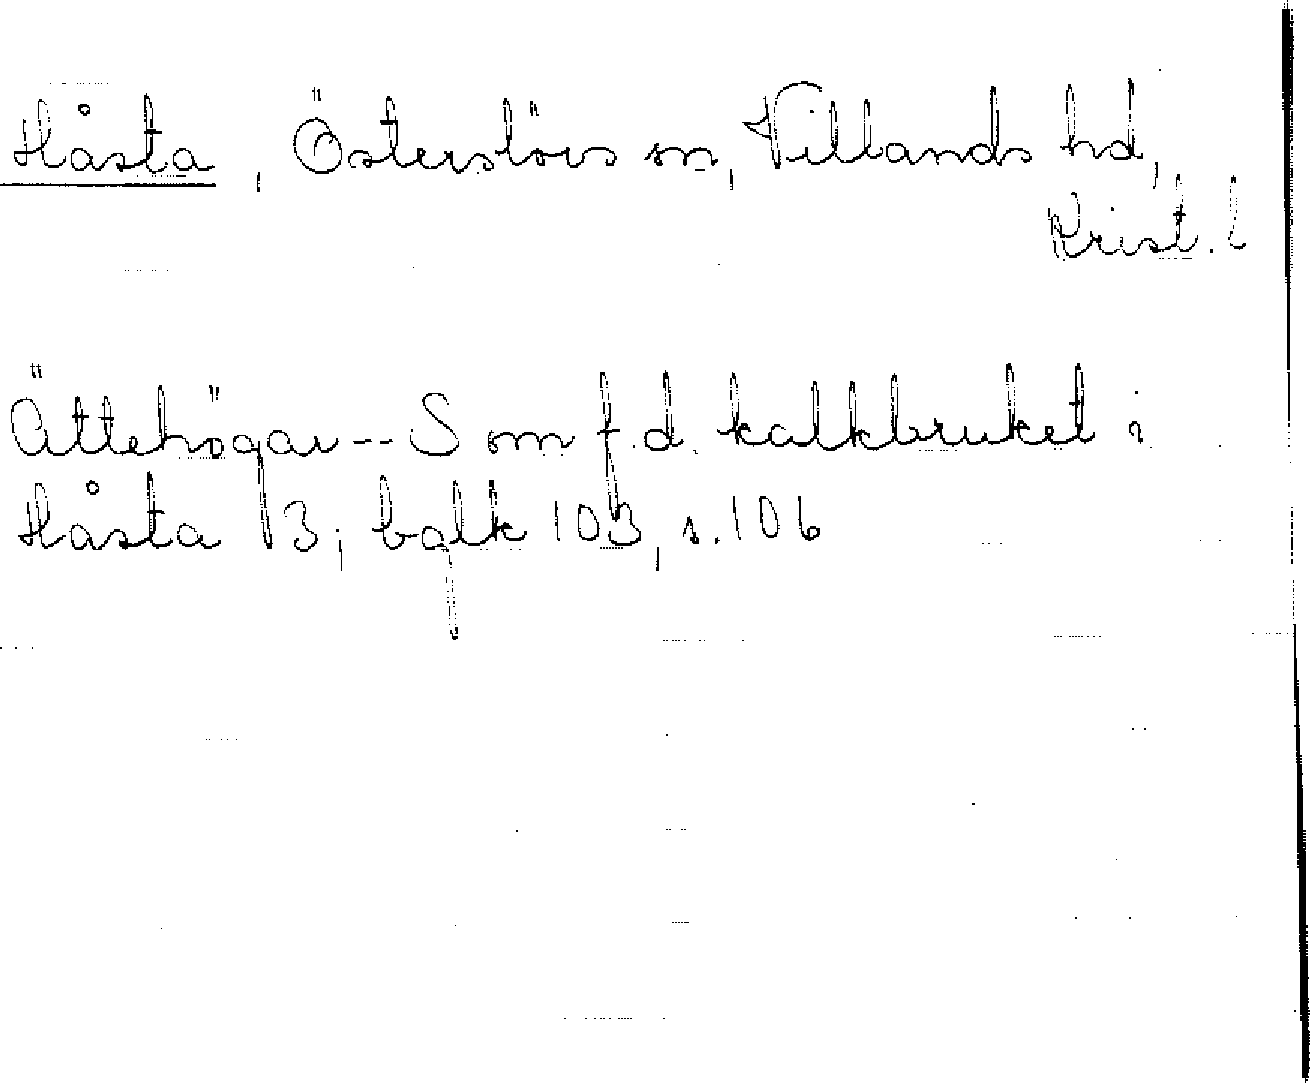 Håsta, Österslövs sn, Villands hd,
Krist. l
Ättehögar -- S om f.d. kalkbruket i
Håsta 13; balk 103, s. 106